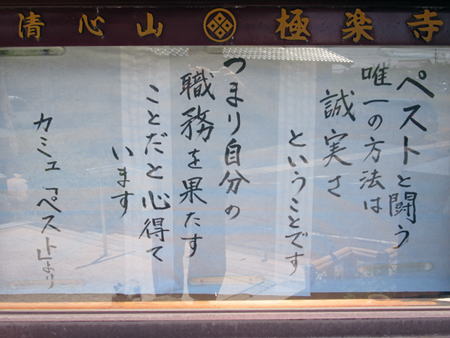 清心山 極楽寺
ペストと闘う
唯一の方法は
誠実さ
ということです
つまり自分の
職務を果たす
ことだと心得て
います
カミュ「ペスト」より